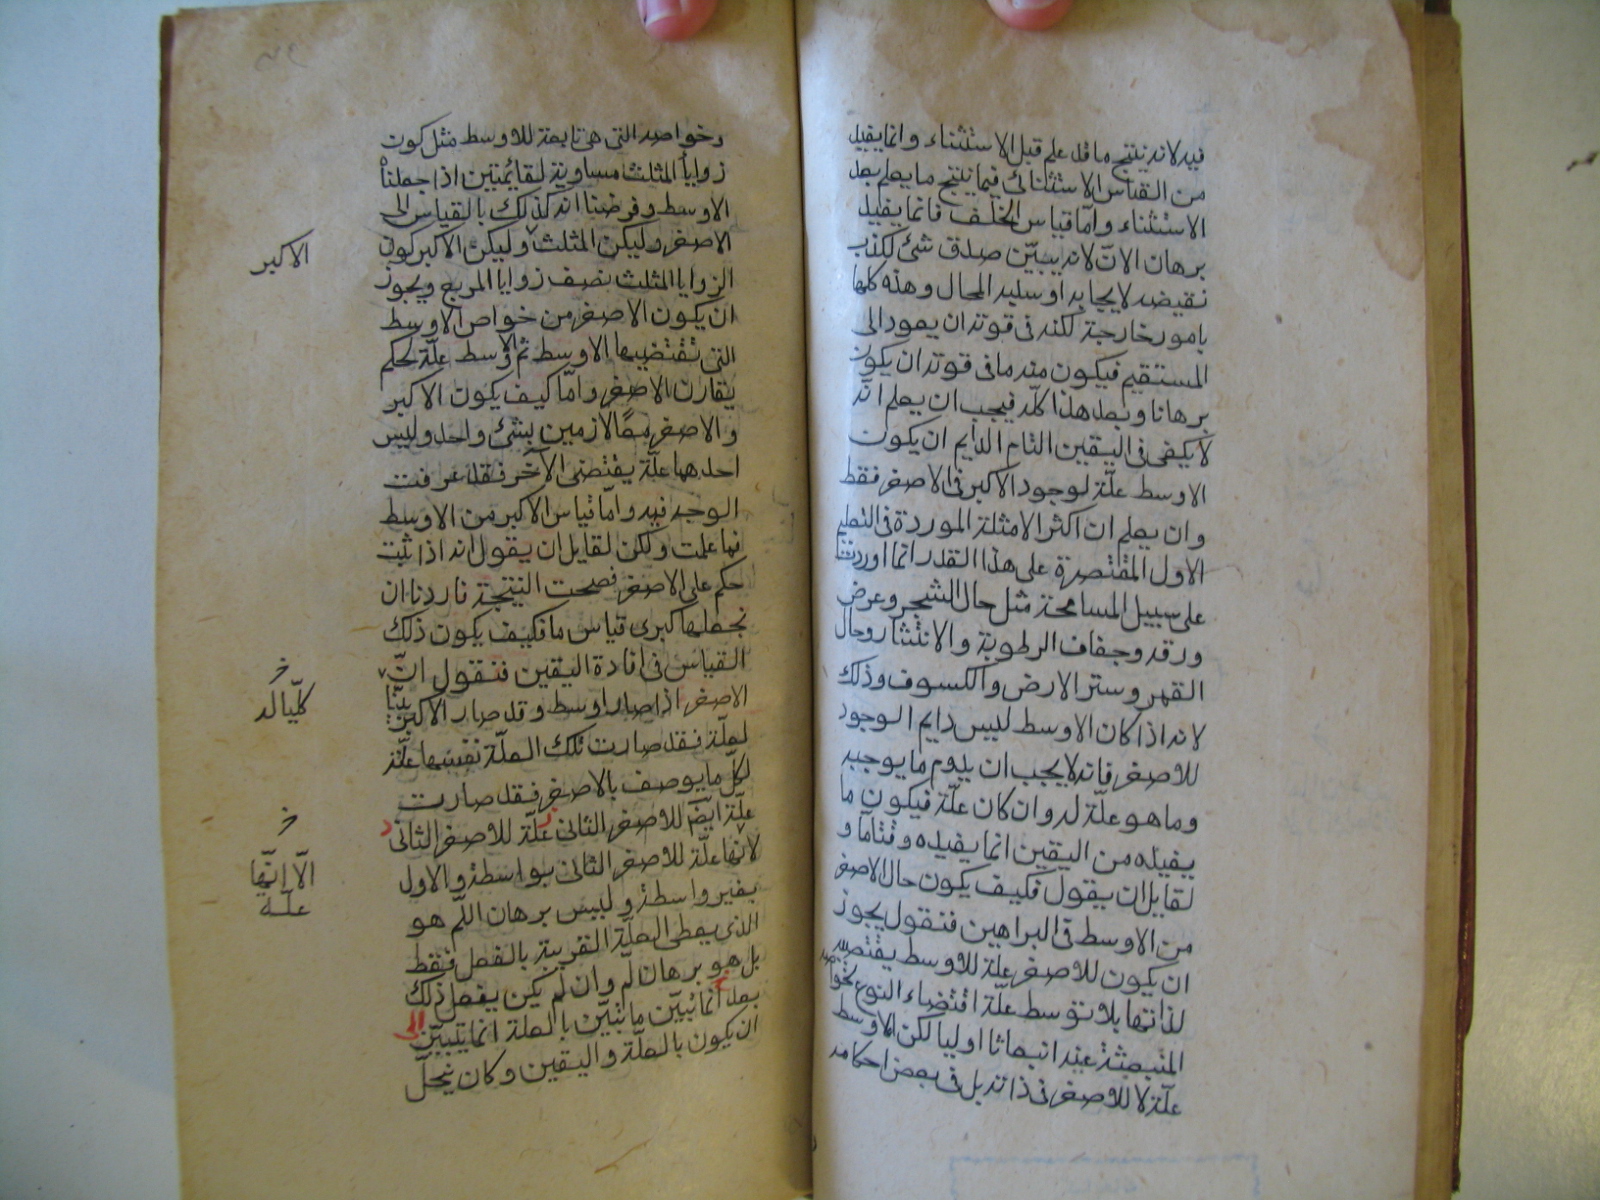 فيه لانه ينتج ما قد علم قبل الاستثناء وانما يفيد
من القياس الاستثنائى فيما ينتج ما يعلم بعد
الاستثناء واما قياس الخلف فانما يفيد
برهان الانّ لانه يبيّن صدق شئ لكذب
نقيضه لايجابه او سلبه المحال وهذه كلها
بامور خارجة لكنه فى قوته ان يعود الى
المستقيم فيكون منه ما فى قوته ان يكون
برهانا وبعد هذا كلّه فيجب ان يعلم انّه
لا يكفى فى اليقين التام الدايم ان يكون
الاوسط علّة لوجود الاكبر فى الاصغر فقط
وان يعلم ان اكثر الامثلة الموردة فى التعليم
الاول المقتصرة على هذا القدر انما اوردت
على سبيل المسامحة مثل حال الشجر وعرض
ورقه وجفاف الرطوبة والانتثار وحال
القمر وستر الارض والكسوف وذلك
لانه اذا كان الاوسط ليس دايم الوجود
للاصغر فانه لا يجب ان يدوم ما يوجبه
وما هو علّة له وان كان علّة فيكون ما
يفيده من اليقين انما يفيده وقتاما و
لقايل ان يقول فكيف يكون حال الاصغر
من الاوسط فى البراهين فنقول يجوز
ان يكون للاصغر علة للاوسط يقتضيه
لذاتها بلا توسط علّة اقتضاء النوع لخواصه
المنبعثة عنه انبعاثا اوليا لكن الاوسط
علّة لا للاصغر فى ذاته بل فى بعض احكامه
وخواصه التى هى تابعة للاوسط مثل كون
زوايا المثلث مساوية لقائمتين اذا جعلناه
الاوسط وفرضنا انه كذلك بالقياس الى
الاصغر وليكن المثلث وليكن الاكبر كون
الزوايا المثلث نصف زوايا المربع ويجوز
الاكبر
ان يكون الاصغر من خواص الاوسط
التى تقتضيها الاوسط ثم الاوسط علّة لحكم
يقارن الاصغر وامّا كيف يكون الاكبر
والاصغر معًا لازمين لشئ واحد وليس
احدهما علّة يقتضى الآخر فقد عرفت
الوجه فيه وامّا قياس الاكبر من الاوسط
فما علمت ولكن لقايل ان يقول انه اذا ثبت
حكم على الاصغر فصحت النتيجة فاردنا ان
نجعلها كبرى قياس ما فكيف يكون ذلك
القياس فى افادة اليقين فنقول انّ
الاصغر اذا صار اوسط وقد صار الاكبر بيّنا
كلّيا له
لعلّة فقد صارت تلك العلّة نفسها علّة
لكلّ ما يوصف بالاصغر فقد صارت
علّة ايضا للاصغر الثانى علّة للاصغر الثانى
الّا انّها علة
لانها علّة للاصغر الثانى بواسطة والاول
بغير واسطة وليس برهان اللّم هو
الذى يعطى العلّة القريبة بالفعل فقط
بل هو برهان لم وان لم يكن يفعل ذلك
بعد انما تبيّن ما تبيّن بالعلة انما يتبيّن الى
ان يكون بالعلّة واليقين وكان ينحلّ